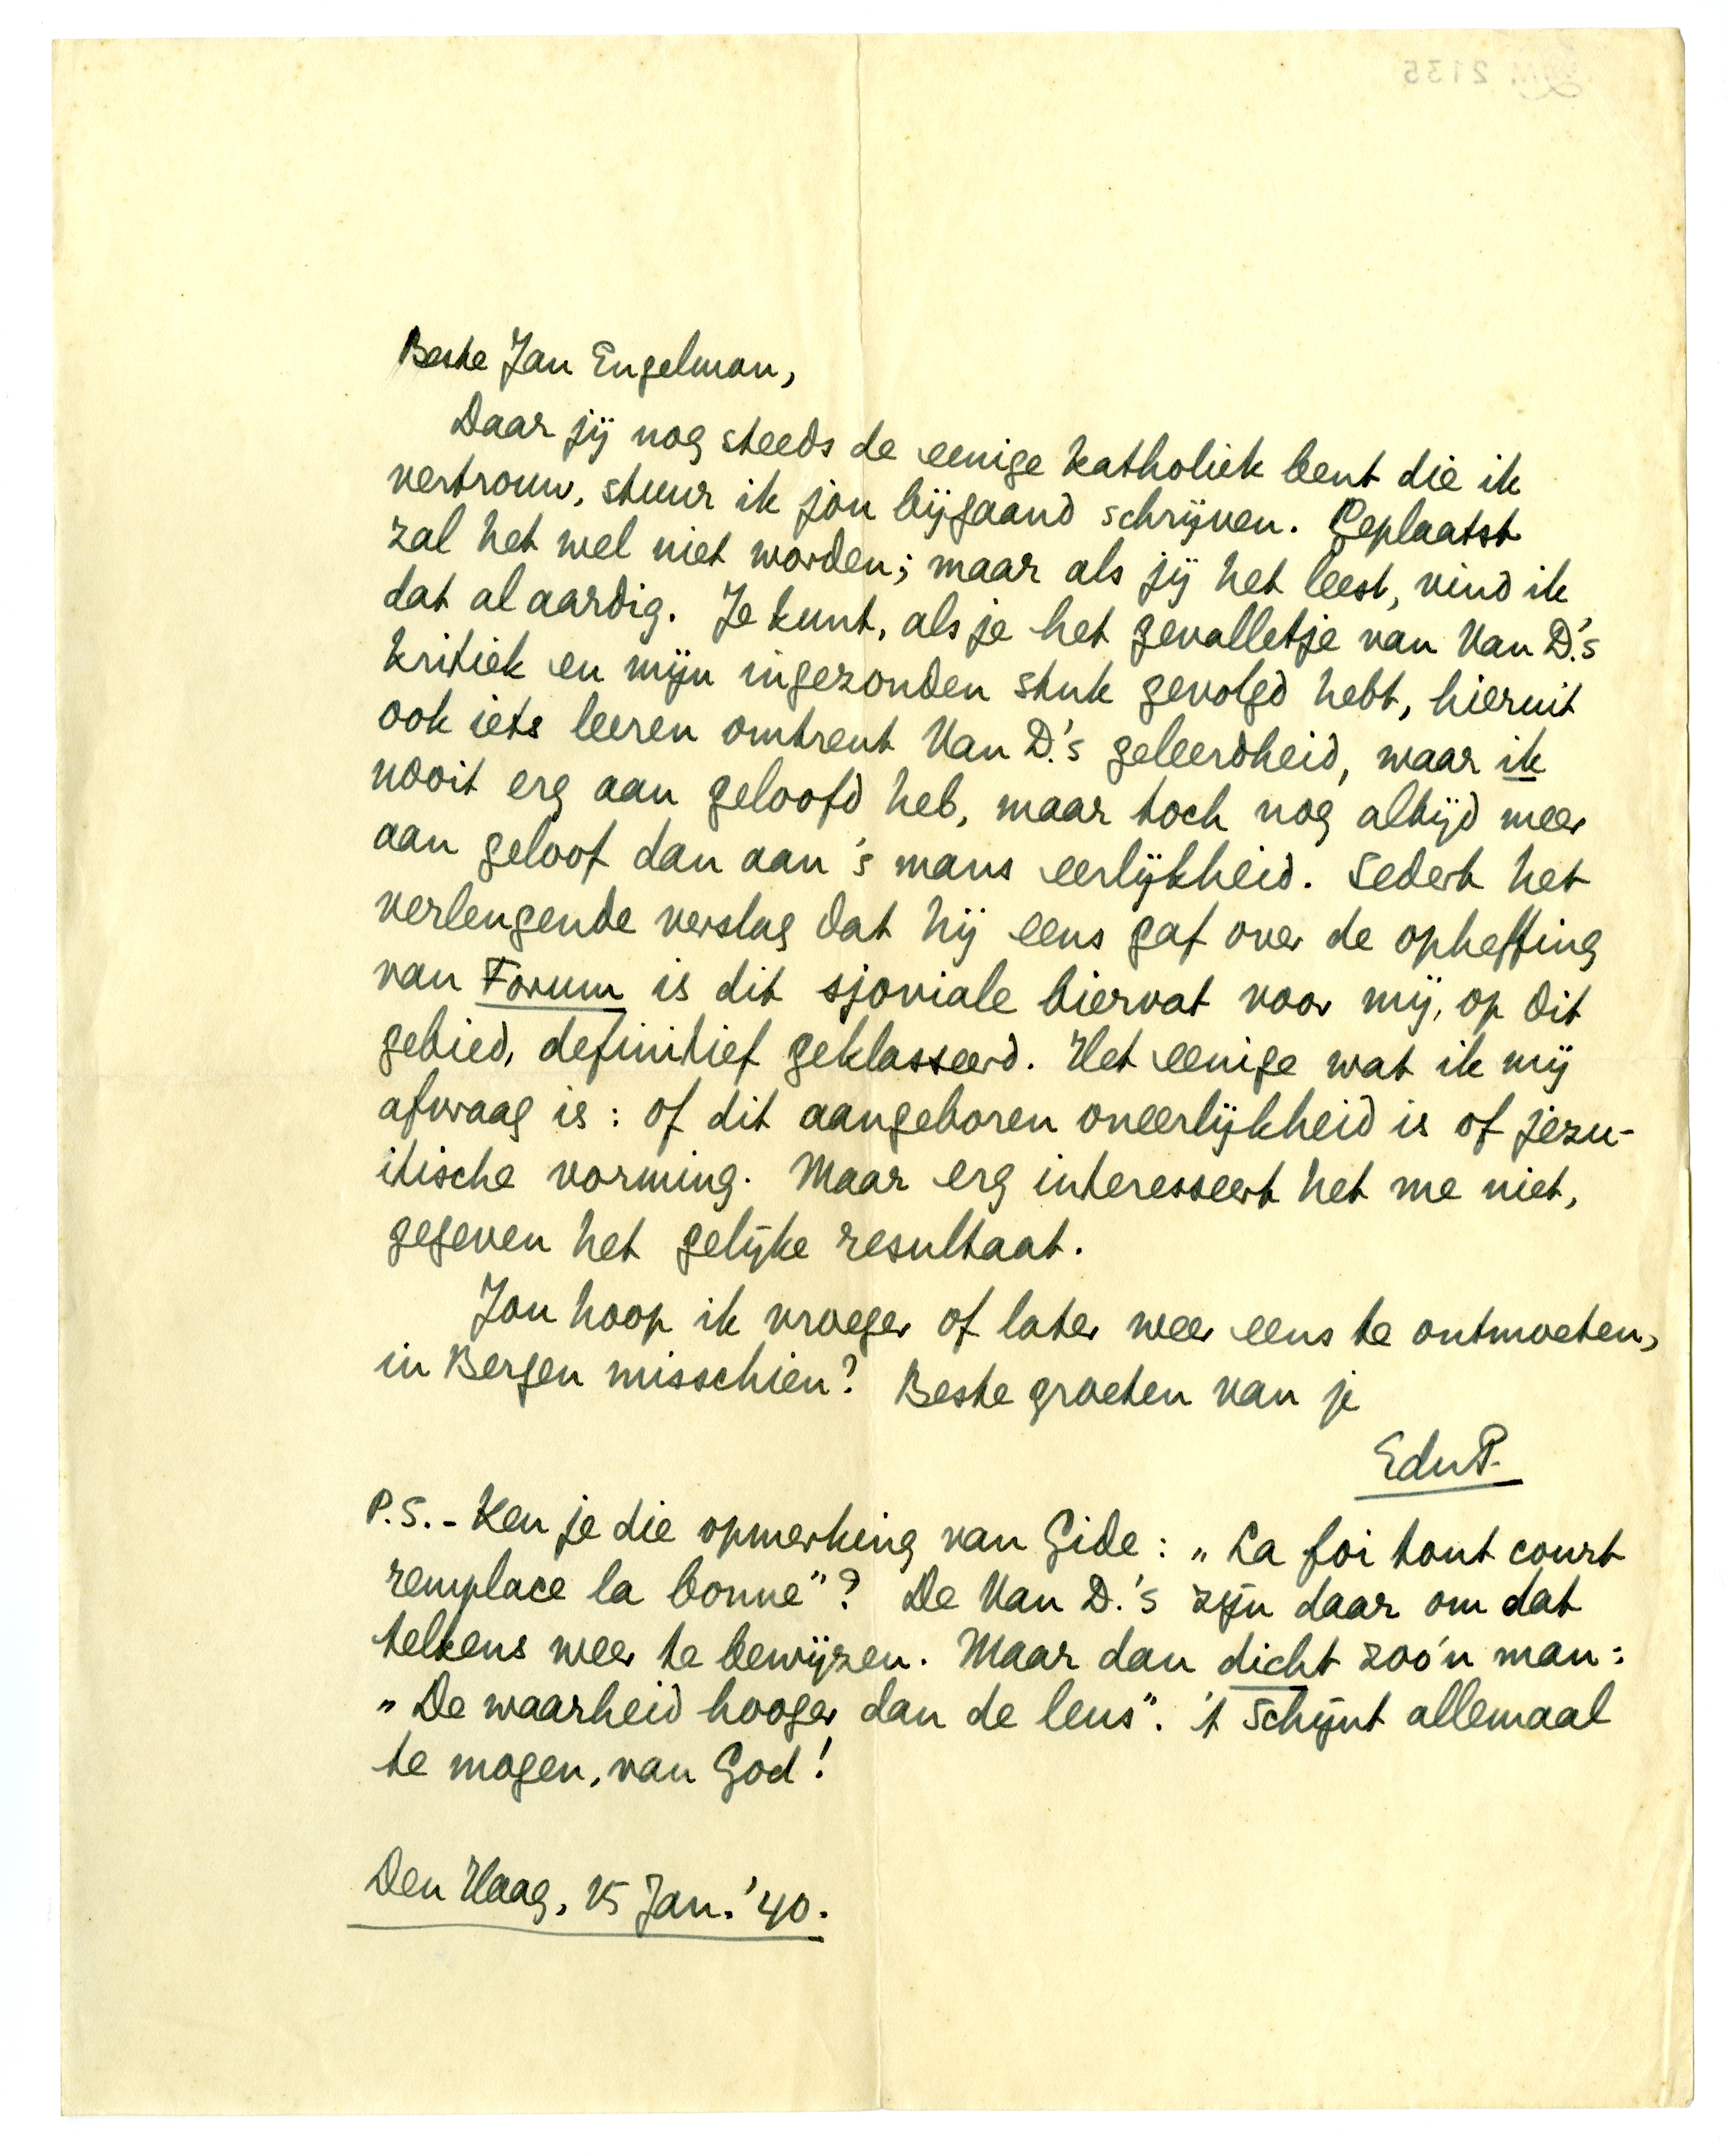 Beste Jan Engelman,
Daar jij nog steeds de eenige katholiek bent die ik
vertrouw, stuur ik jou bijgaand schrijven. Geplaatst
zal het wel niet worden; maar als jij het leest, vind ik
dat al aardig. Je kunt, als je het gevalletje van Van D.'s
kritiek en mijn ingezonden stuk gevolgd hebt, hieruit
ook iets leeren omtrent Van D.'s geleerdheid, waar ik
nooit erg aan geloofd heb, maar toch nog altijd meer
aan geloof dan aan 's mans eerlijkheid. Sedert het
verlengende verslag dat hij eens gaf over de opheffing
van Forum is dit sjoviale biervat voor mij, op dit
gebied, definitief geklasseerd. Het eenige wat ik mij
afvraag is: of dit aangeboren oneerlijkheid is of jezu-
itische vorming. Maar erg interesseert het me niet,
gegeven het gelijke resultaat.
Jou hoop ik vroeger of later weer eens te ontmoeten,
in Bergen misschien? Beste groeten van je
EduP.
P.S. - Ken je die opmerking van Gide: „La foi tout court
remplace la bonne"? De Van D.'s zijn daar om dat
telkens weer te bewijzen. Maar dan dicht zoo'n man:
„De waarheid hooger dan de leus". 't Schijnt allemaal
te mogen, van God!
Den Haag, 15 Jan. '40.
2135